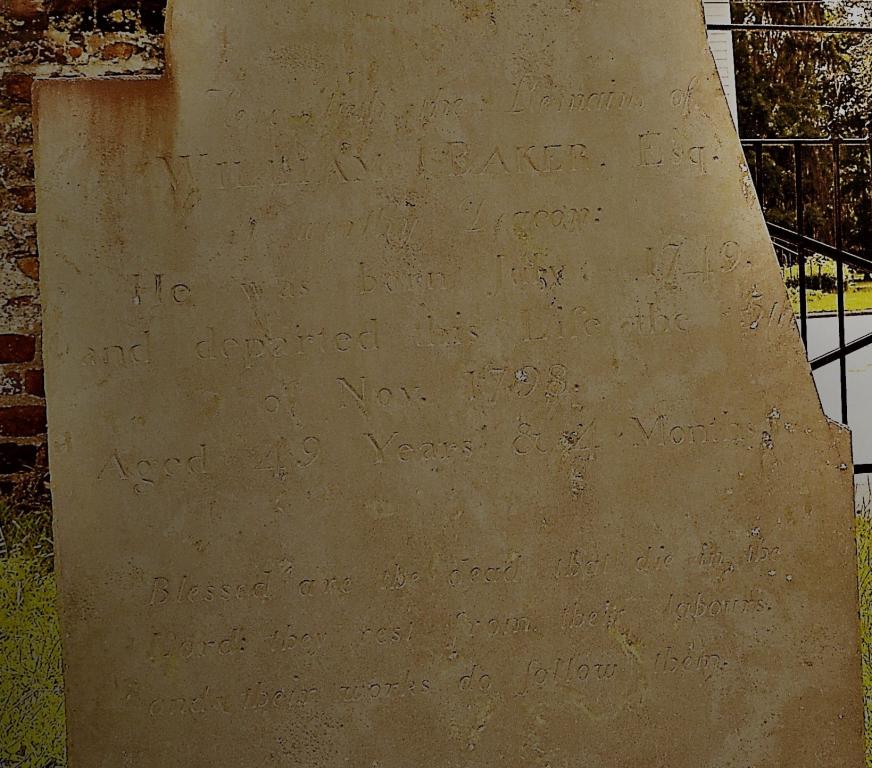 Here lieth the Remains of
WILLIAM BAKER. Esq.
worthy Deacon:
He was born July 1749.
and departed this Life the 5th
of Nov. 1798.
Aged 49 Years & 4 Months
Blessed are the dead that die in the
Lord: they rest from their labours.
and their works do follow them.